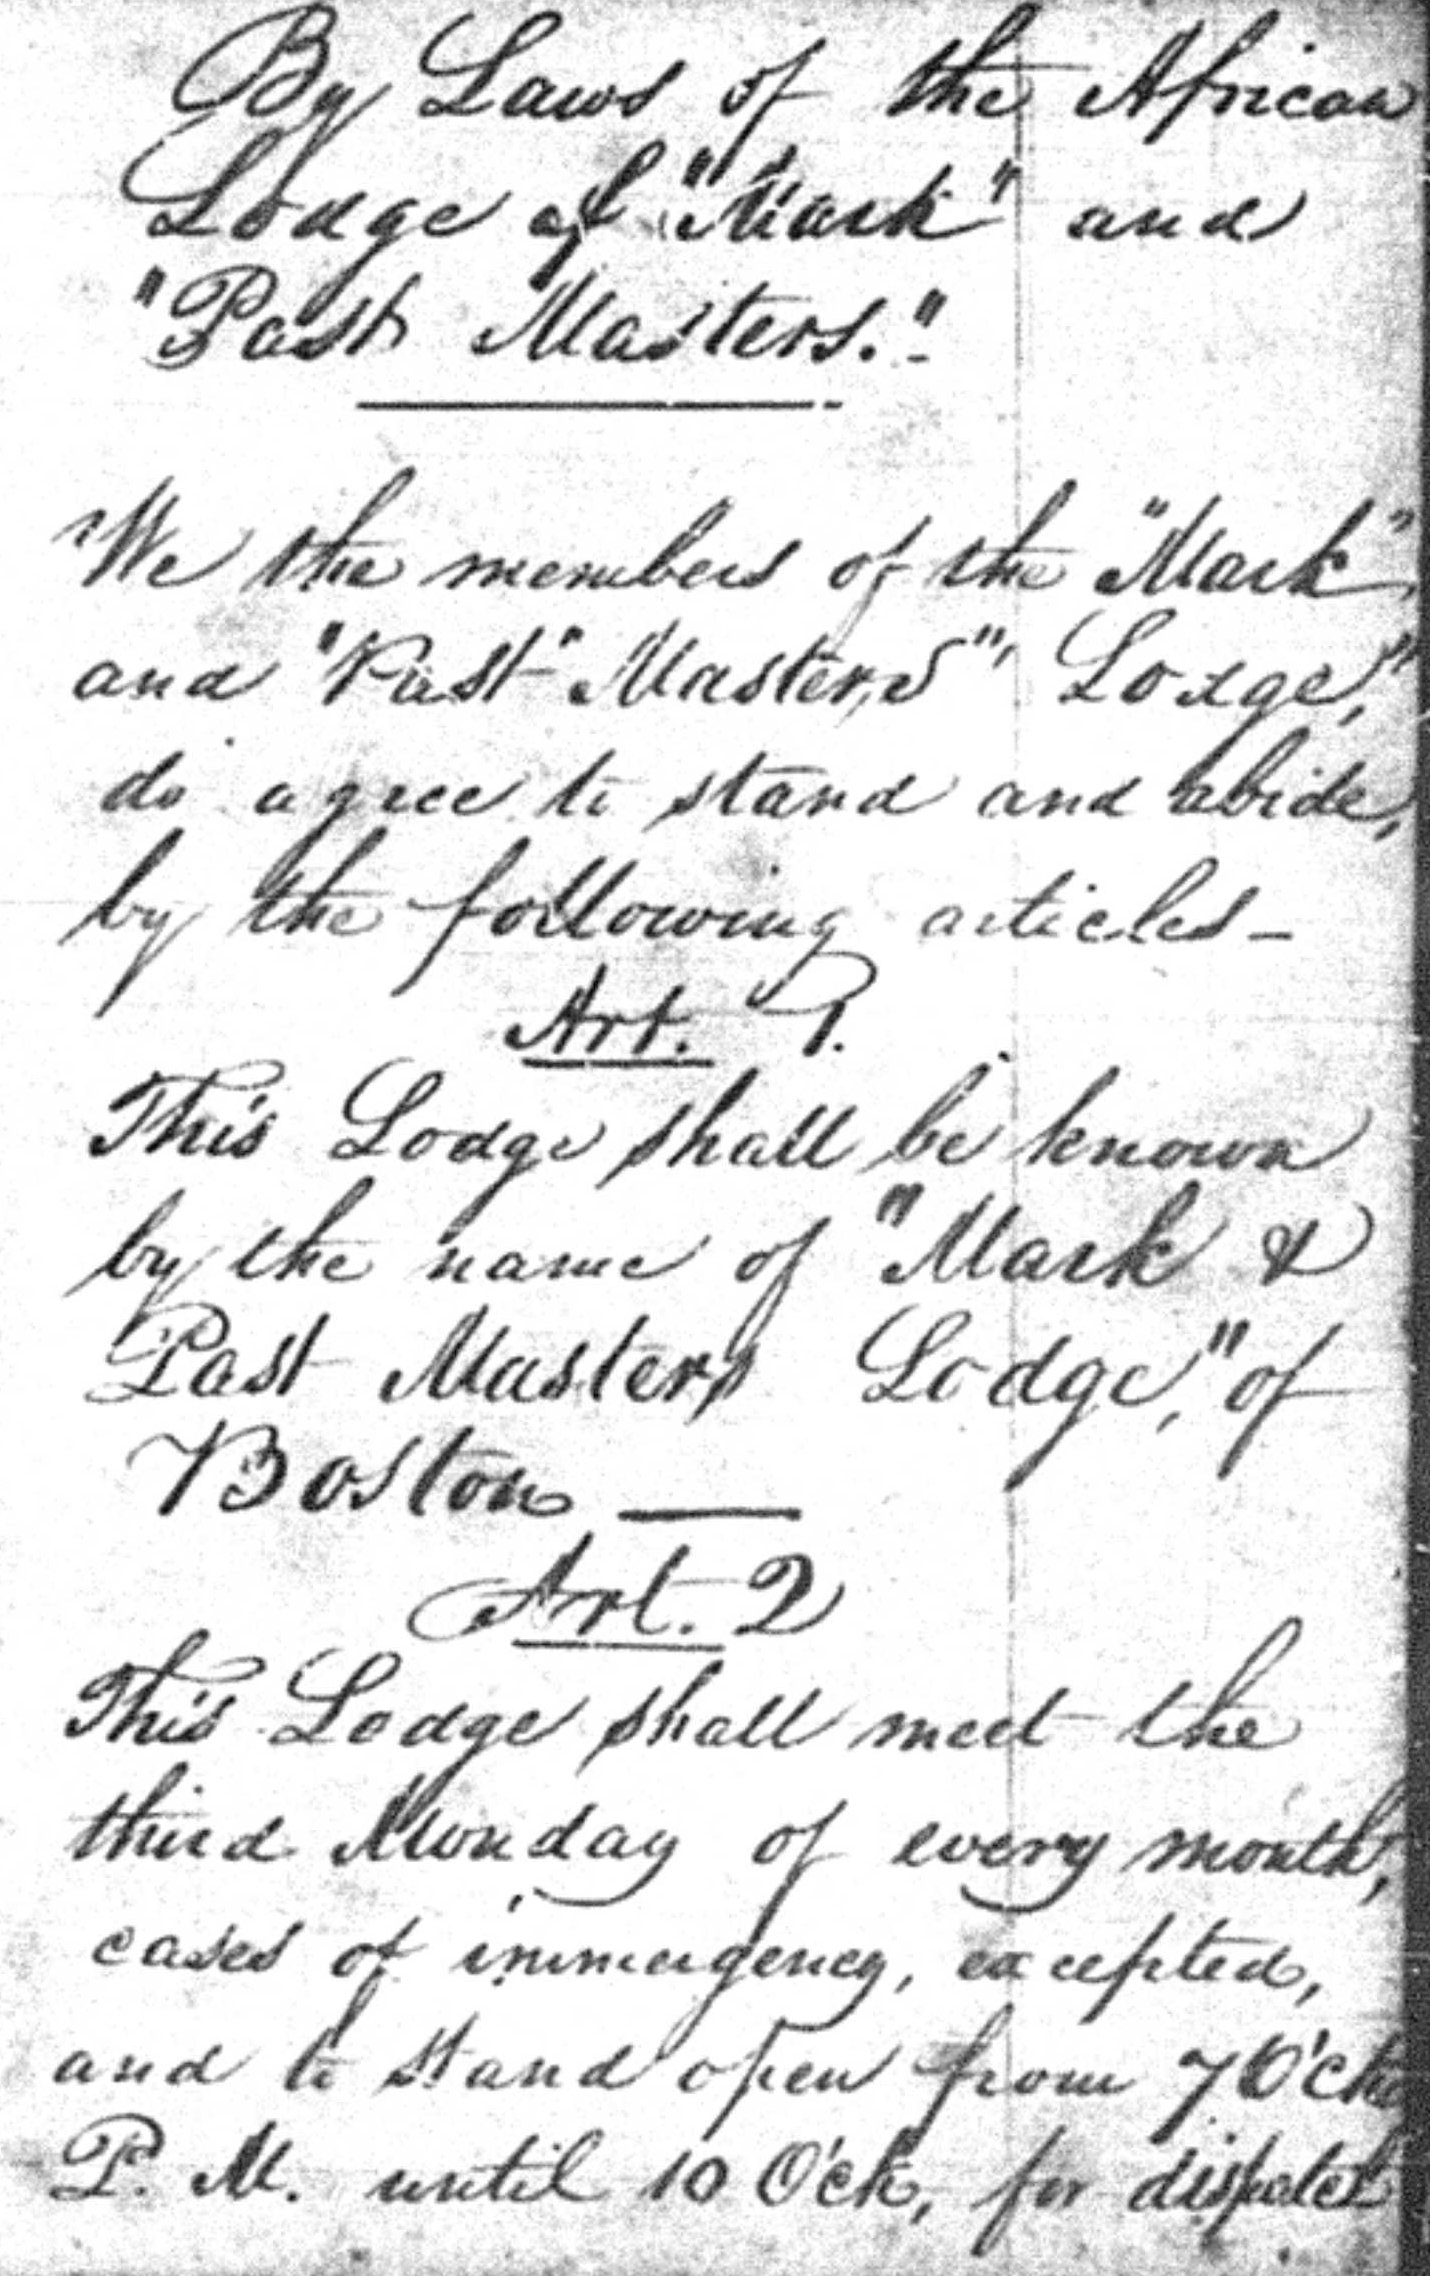 By Laws of the African
Lodge of "Mark" and
"Past Masters."
We the members of the "Mark"
and "Past" Masters" Lodge,"
do agree to stand and abide,
by the following articles -
Art. 1.
This Lodge shall be known
by the name of "Mark &
Past Masters Lodge," of
Boston —
Art. 2
This Lodge shall meet the
third Monday of every month,
cases of immergency, excepted,
and to stand open from 7 O'ck
P. M. until 10 O'ck, for dispatch